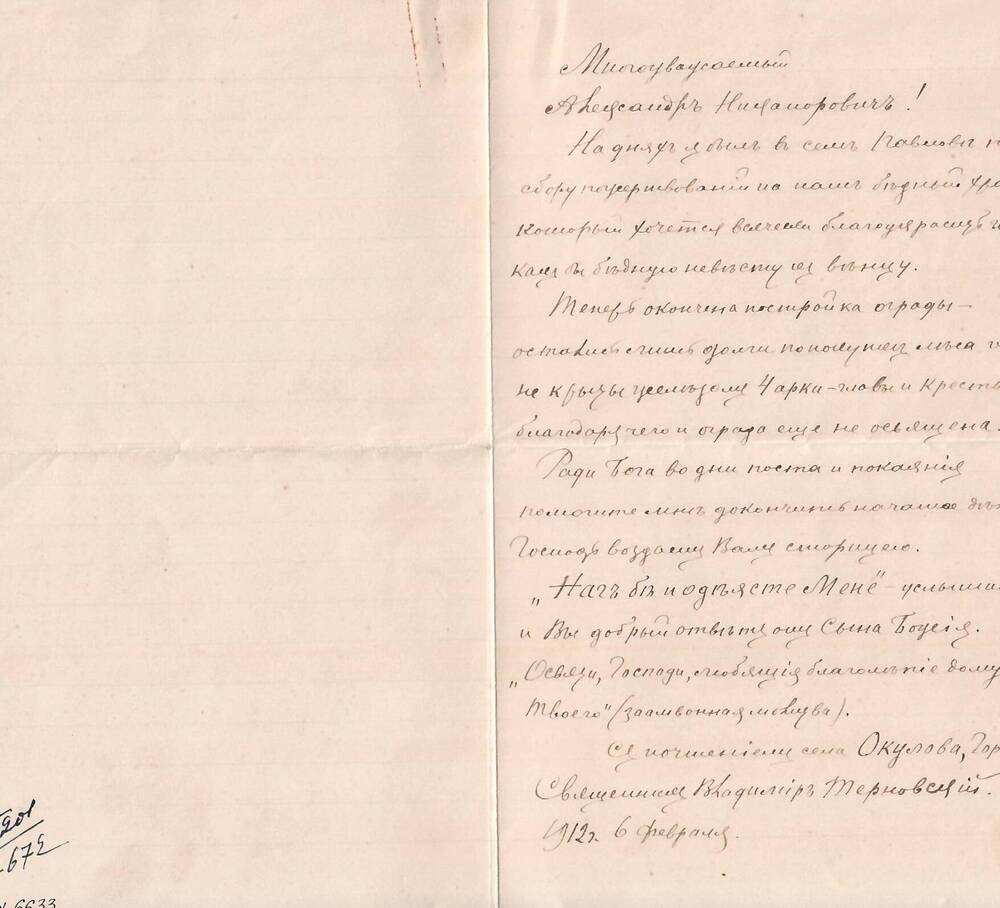 Многоуважаемый
Александръ Никаноровичъ!
На дняхъ я былъ въ селѣ Павловѣ п
сбору пожертвованій на нашъ бѣдный хра
который хочется всячески благоукрасить и
какъ бы бѣдную невѣсту къ вѣнцу.
Теперь окончена постройка ограды –
остались лишь долги по покупкѣ лѣса и
не крыты желѣзомъ Чарки-главы и кресты
благодаря чего и ограда еще не освящена.
Ради Бога во дни поста и покаянія
помогите мнѣ докончить начатое дѣ
Господь воздастъ Вамъ сторицею.
„Нагъ бѣ и одѣясте Мене" – услыши
и Вы добрый отвѣтъ отъ Сына Божія.
„Освяти, Господи, любящія благолѣпіе дому
Твоего" (заамвонная молитва).
Съ почтеніемъ села Окулова, Гор
Священникъ Владиміръ Терновскій.
1912г. 6 февраля.
201
672
6633